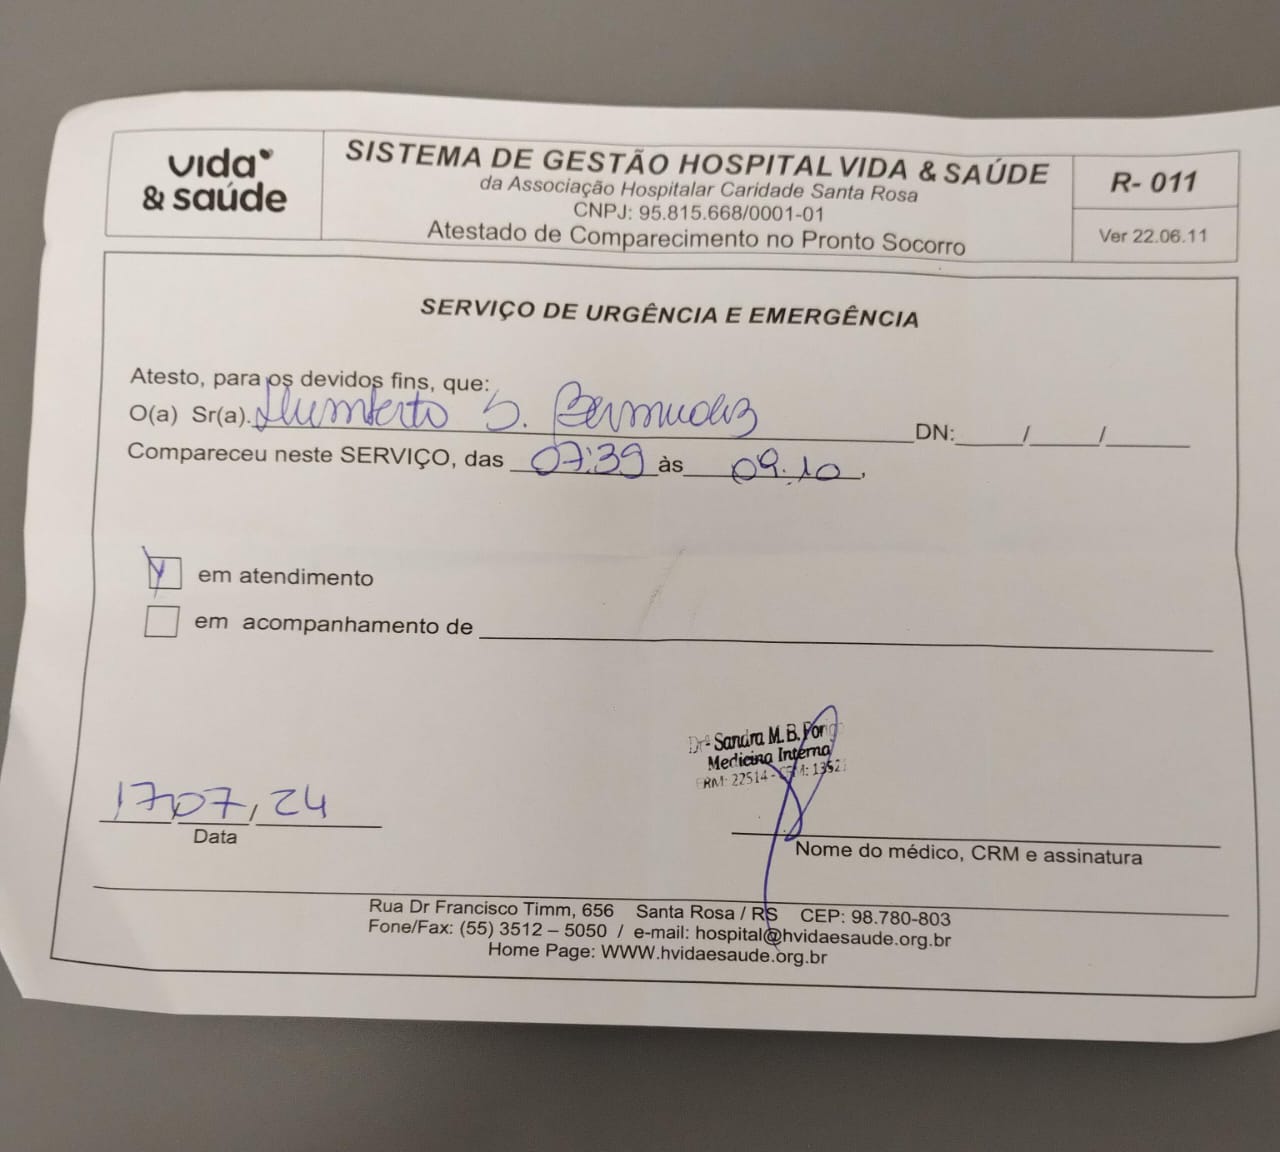 vida
& saúde
SISTEMA DE GESTÃO HOSPITAL VIDA & SAÚDE
da Associação Hospitalar Caridade Santa Rosa
CNPJ: 95.815.668/0001-01
Atestado de Comparecimento no Pronto Socorro
R- 011
Ver 22.06.11
SERVIÇO DE URGÊNCIA E EMERGÊNCIA
Atesto, para os devidos fins, que:
O(a) Sr(a). Humberto S. Bermudez DN: / /
Compareceu neste SERVIÇO, das 07:39 às 09.10,
em atendimento
em acompanhamento de
Drª Sandra M. B.
Medicina Interna
CRM: 22514
17/07/24
Data
Nome do médico, CRM e assinatura
Rua Dr Francisco Timm, 656 Santa Rosa / RS CEP: 98.780-803
Fone/Fax: (55) 3512 – 5050 / e-mail: hospital@hvidaesaude.org.br
Home Page: WWW.hvidaesaude.org.br